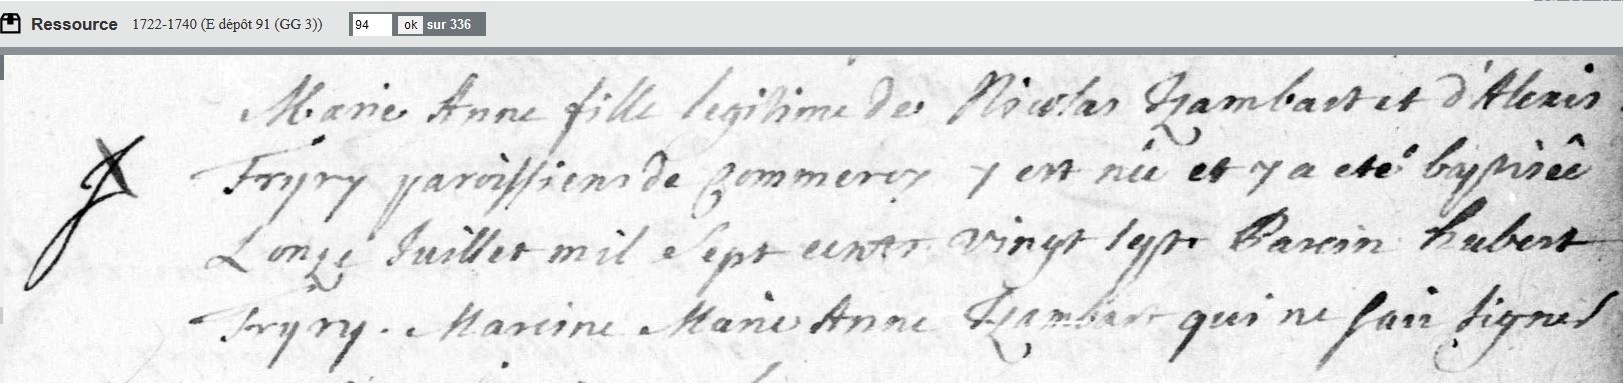 Ressource 1722-1740 (E dépôt 91 (GG 3)) 94 ok sur 336
Marie Anne fille legitime de Nicolas Hambart et d'Alexis
Fryry paroissiens de Commercy y est née et y a eté baptisée
Lonze Juillet mil sept cents vingt sept Parein hubert
Fryry. Mareine Marie Anne Hambart qui ne scait signer